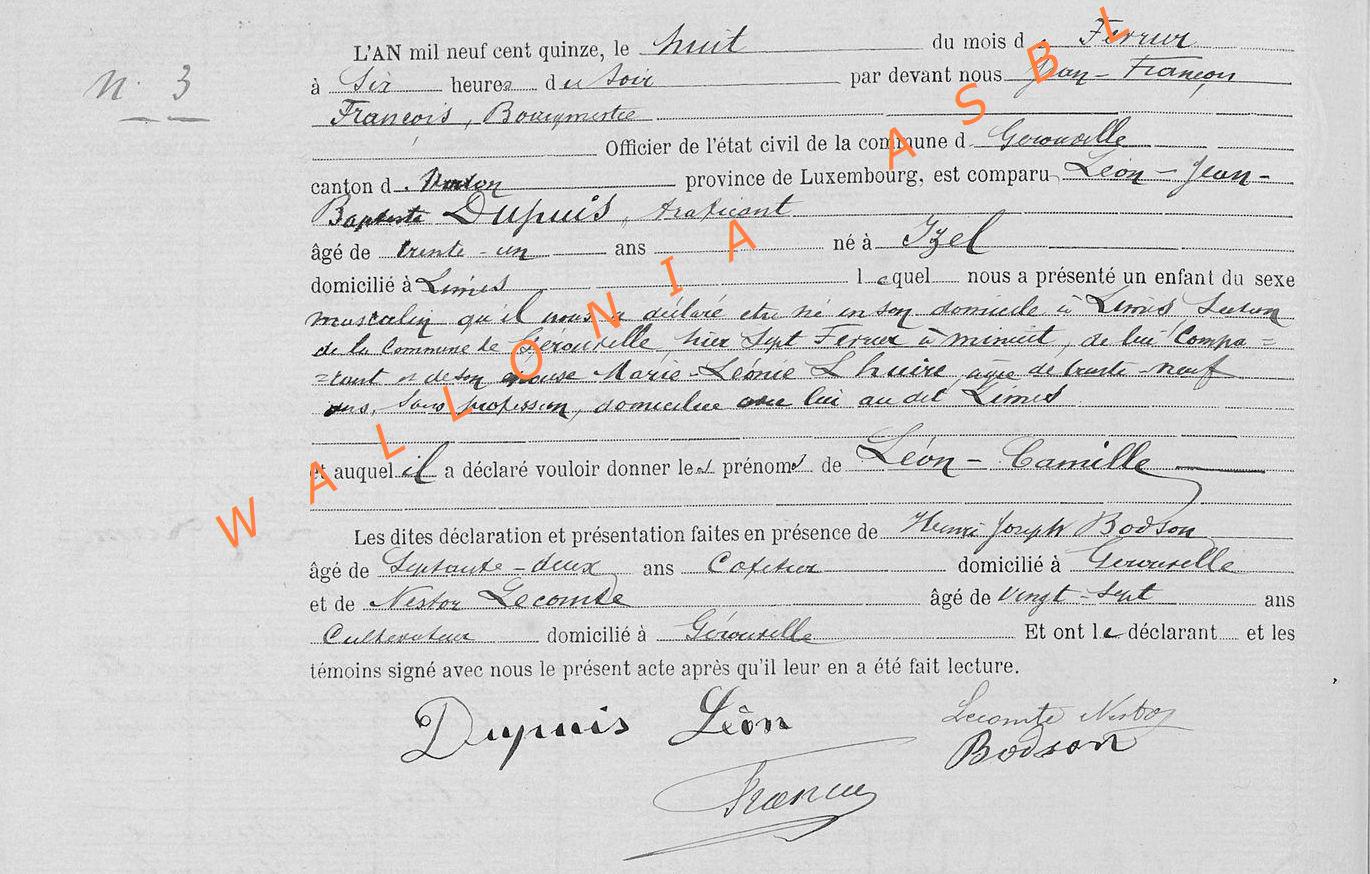 N. 3
L'AN mil neuf cent quinze, le huit du mois d. Fevrier
à Six heures du Soir par devant nous Jean-François
François, Bourgmestre
Officier de l'état civil de la commune d Gérouville
canton d. Virton province de Luxembourg, est comparu Léon-Jean-
Baptiste Dupuis, trafiquant
âgé de trente-un ans né à Izel
domicilié à Limes lequel nous a présenté un enfant du sexe
masculin qu'il nous a déclaré etre né en son domicile à Limes Section
de la Commune de Gérouville, hier Sept Fevrier à minuit, de lui Compa=
=rant et de son épouse Marie-Léonie Lhuire, agée de trente-neuf
ans, Sans profession, domiciliée avec lui au dit Limes
et auquel il a déclaré vouloir donner les prénoms de Léon-Camille
Les dites déclaration et présentation faites en présence de Henri Joseph Bodson
âgé de Septante-deux ans Cafetier domicilié à Gérouville
et de Nestor Lecomte âgé de vingt-sept ans
Cultivateur domicilié à Gérouville Et ont le déclarant et les
témoins signé avec nous le présent acte après qu'il leur en a été fait lecture.
Dupuis Léon
Lecomte Nestor
Bodson
WALLONIA ASBL